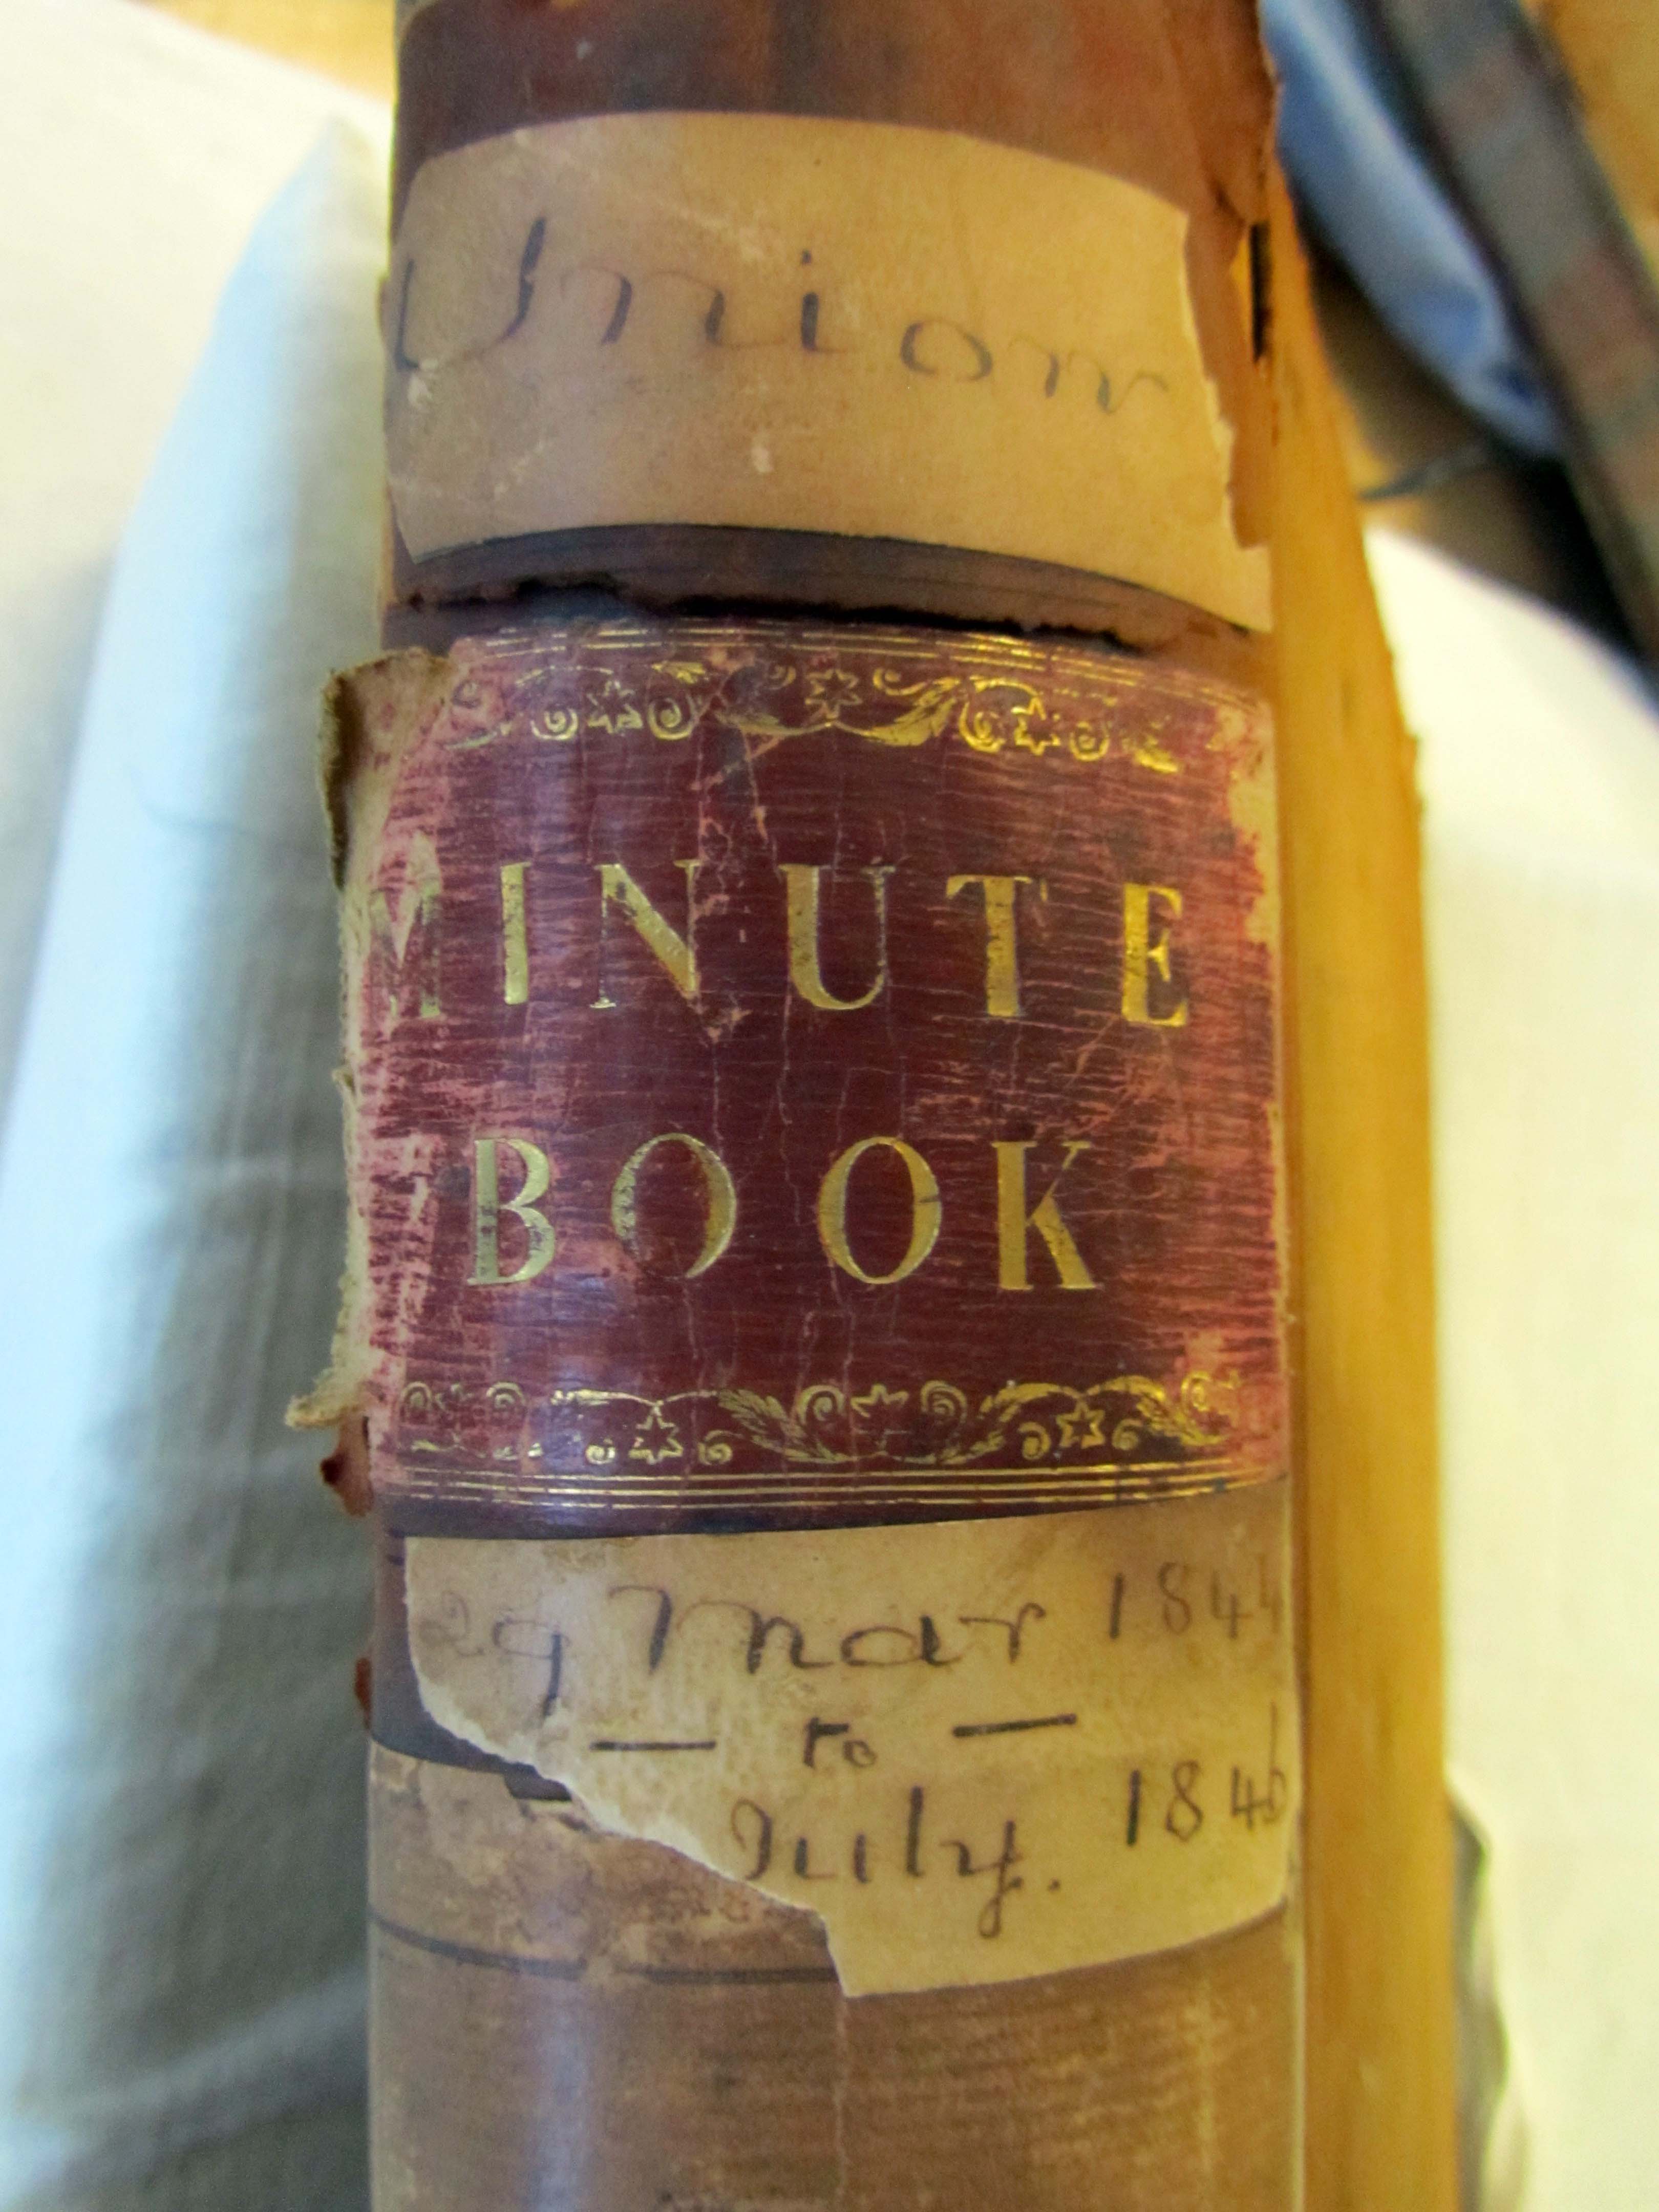 Union
MINUTE
BOOK
29 Mar 1844
— to —
July. 1846